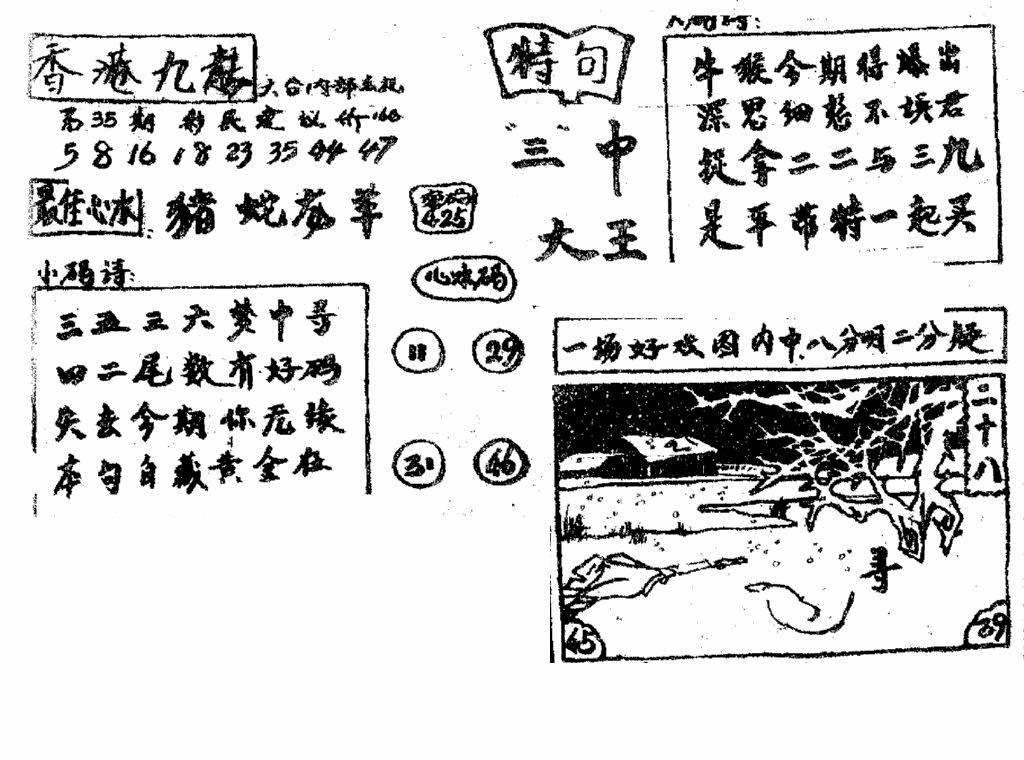 香港九龍
六合内部
第35期 彩民建议
5 8 16 18 23 35 44 47
最佳心水 豬蛇 羊
4.25
小码诗:
三五三六梦中寻
四二尾数有好码
失去今期你无缘
本句自藏黄金在
特句
"三"中
大王
心水码
11 29
31 46
牛猴今期得爆出
深思细想不误君
捉拿二二与三九
是平带特一起买
一场好戏图内中.八分明二分疑
二十八
寻
45
39